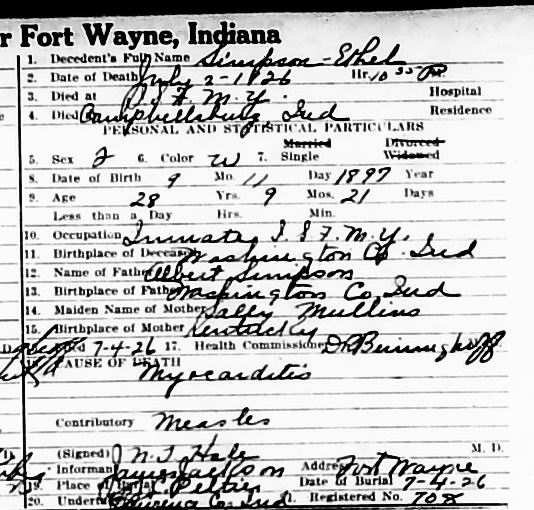 r Fort Wayne, Indiana
1. Decedent's Full Name Simpson - Ethel
2. Date of Death July 2-1926 Hr. 10 35 P.
3. Died at I.S.F.M.Y. Hospital
4. Died Campbellsburg, Ind Residence
PERSONAL AND STATISTICAL PARTICULARS
Married Divorced
5. Sex F 6. Color W 7. Single Widowed
8. Date of Birth 9 Mo. 11 Day 1897 Year
9. Age 28 Yrs. 9 Mos. 21 Days
Less than a Day Hrs. Min.
10. Occupation Inmate, I.S.F.M.Y.
11. Birthplace of Deceased Washington Co. Ind
12. Name of Father Albert Simpson
13. Birthplace of Father Washington Co. Ind
14. Maiden Name of Mother Sally Mullins
15. Birthplace of Mother Kentucky
7-4-26 17. Health Commissioner Dr
CAUSE OF DEATH
Myocarditis
Contributory Measles
(Signed) N. T. Hale M. D.
Informan James Jackson Addre Fort Wayne
19. Place of Burial Peltier Date of Burial 7-4-26
20. Undert Co. Ind 21. Registered No. 708